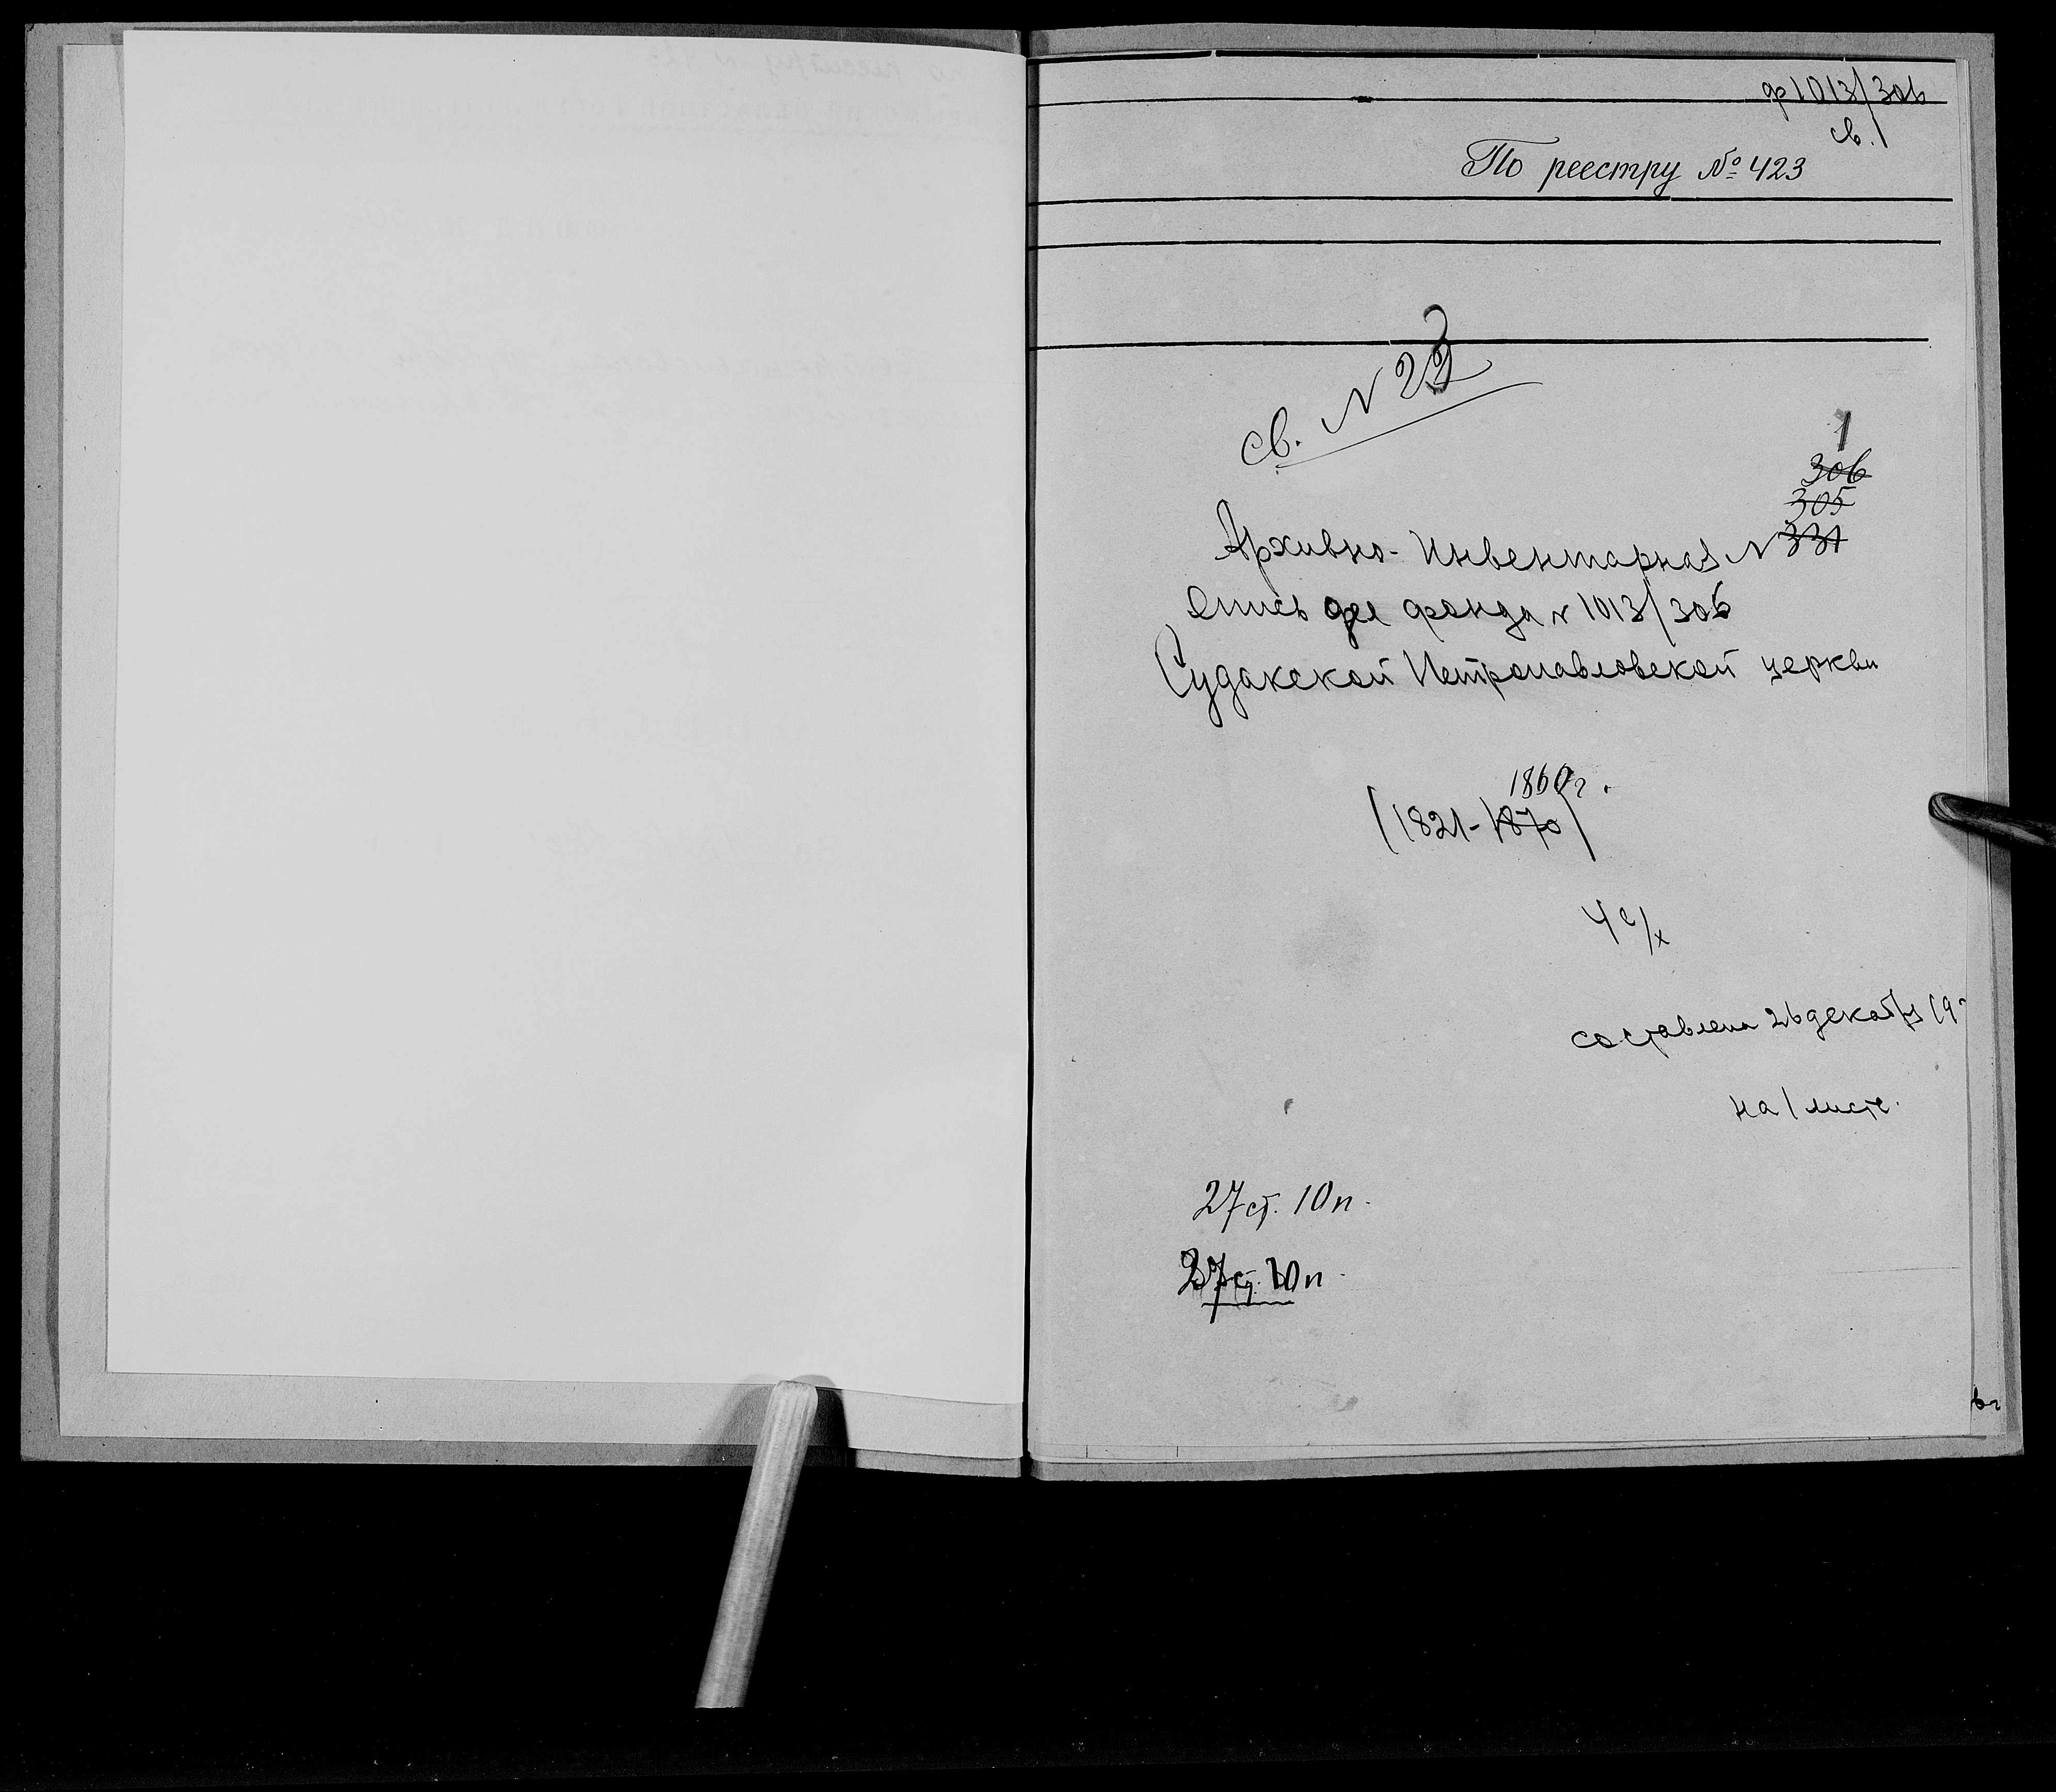 ф 1013/306
св. 1
По реестру № 423
св. N 23
1
306
305
331
Архивно-Инвентарная N
Опись дел фонда N 1013/306
Судакской Петропавловской церкви
1860 г.
(1821-1870)
4 е/х
составлена 26 декабря 19
на 1 листе.
27 ст. 10 п.
27 ст. 10 п.